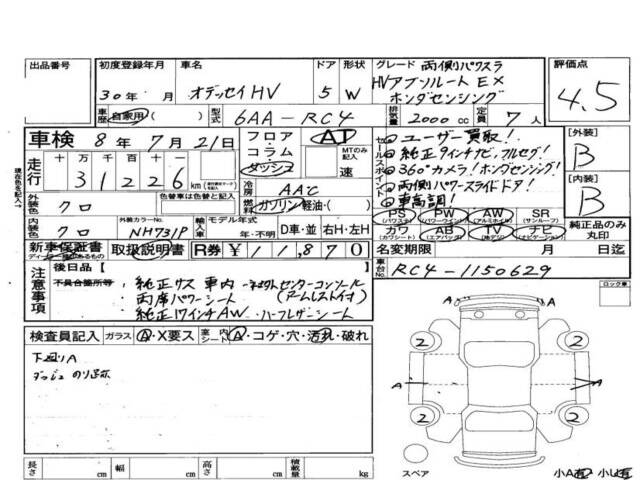 出品番号
初度登録年月
30年 月
車名
オデッセイHV
ドア
5
形状
W
グレード 両側パワスラ
HVアブソルート EX
ホンダセンシング
評価点
4.5
車歴
自家用
型式
6AA-RC4
排気量
2000 cc
定員
7人
車検 8年 7月 21日
フロア・コラム・ダッシュ
AT
MTのみ記入
速
セールスポイント
ユーザー買取!
純正9インチナビ、フルセグ!
360°カメラ!ホンダセンシング!
両側パワースライドドア!
車高調!
[外装]
B
[内装]
B
走行
十 万 千 百 十 一
31226 km
冷房
AAC
燃料
ガソリン 軽油( )
外装色
クロ
色替車は色替と記入
内装色
クロ
外装カラーNo.
NH731P
輸入車
モデル年式
年・不明
D車・並
右H・左H
PS
(パワステ)
PW
(パワーウインド)
AW
(アルミホイル)
SR
(サンルーフ)
カワ
(カワシート)
AB
(エアバッグ)
TV
(地デジ)
ナビ
(ナビゲーション)
純正品のみ丸印
新車保証書
取扱説明書
R券 ¥11,870
名変期限 月 日迄
車台No.
RC4-1150629
注意事項
後日品[ ]
不具合箇所等
純正サス 車内
センターコンソール
両席パワーシート
(アームレスト付)
純正17インチAW ハーフレザーシート
ロック車
検査員記入
ガラス
A・X要ス
室内
シート
A・コゲ・穴・汚れ・破れ
下回りA
ダッシュ のり跡
2
2
A
A
2
2
スペア
小A有
小U有
長さ cm
幅 cm
高さ cm
積載量 kg
現在色を記入→